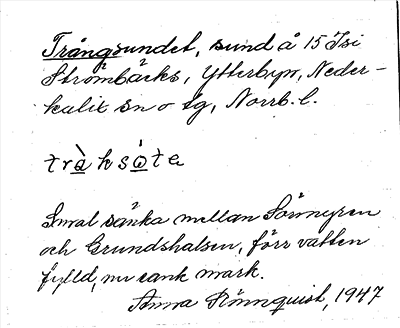 Trångsundet, sund å 15 Jsi
Strömbäcks, Ytterbyn, Neder-
kalix sn o tg, Norrb. l.
tràksòte
Smal sänka mellan Sörmyren
och Grundshalsen, förr vatten
fylld, nu sank mark.
Anna Rönnquist, 1947